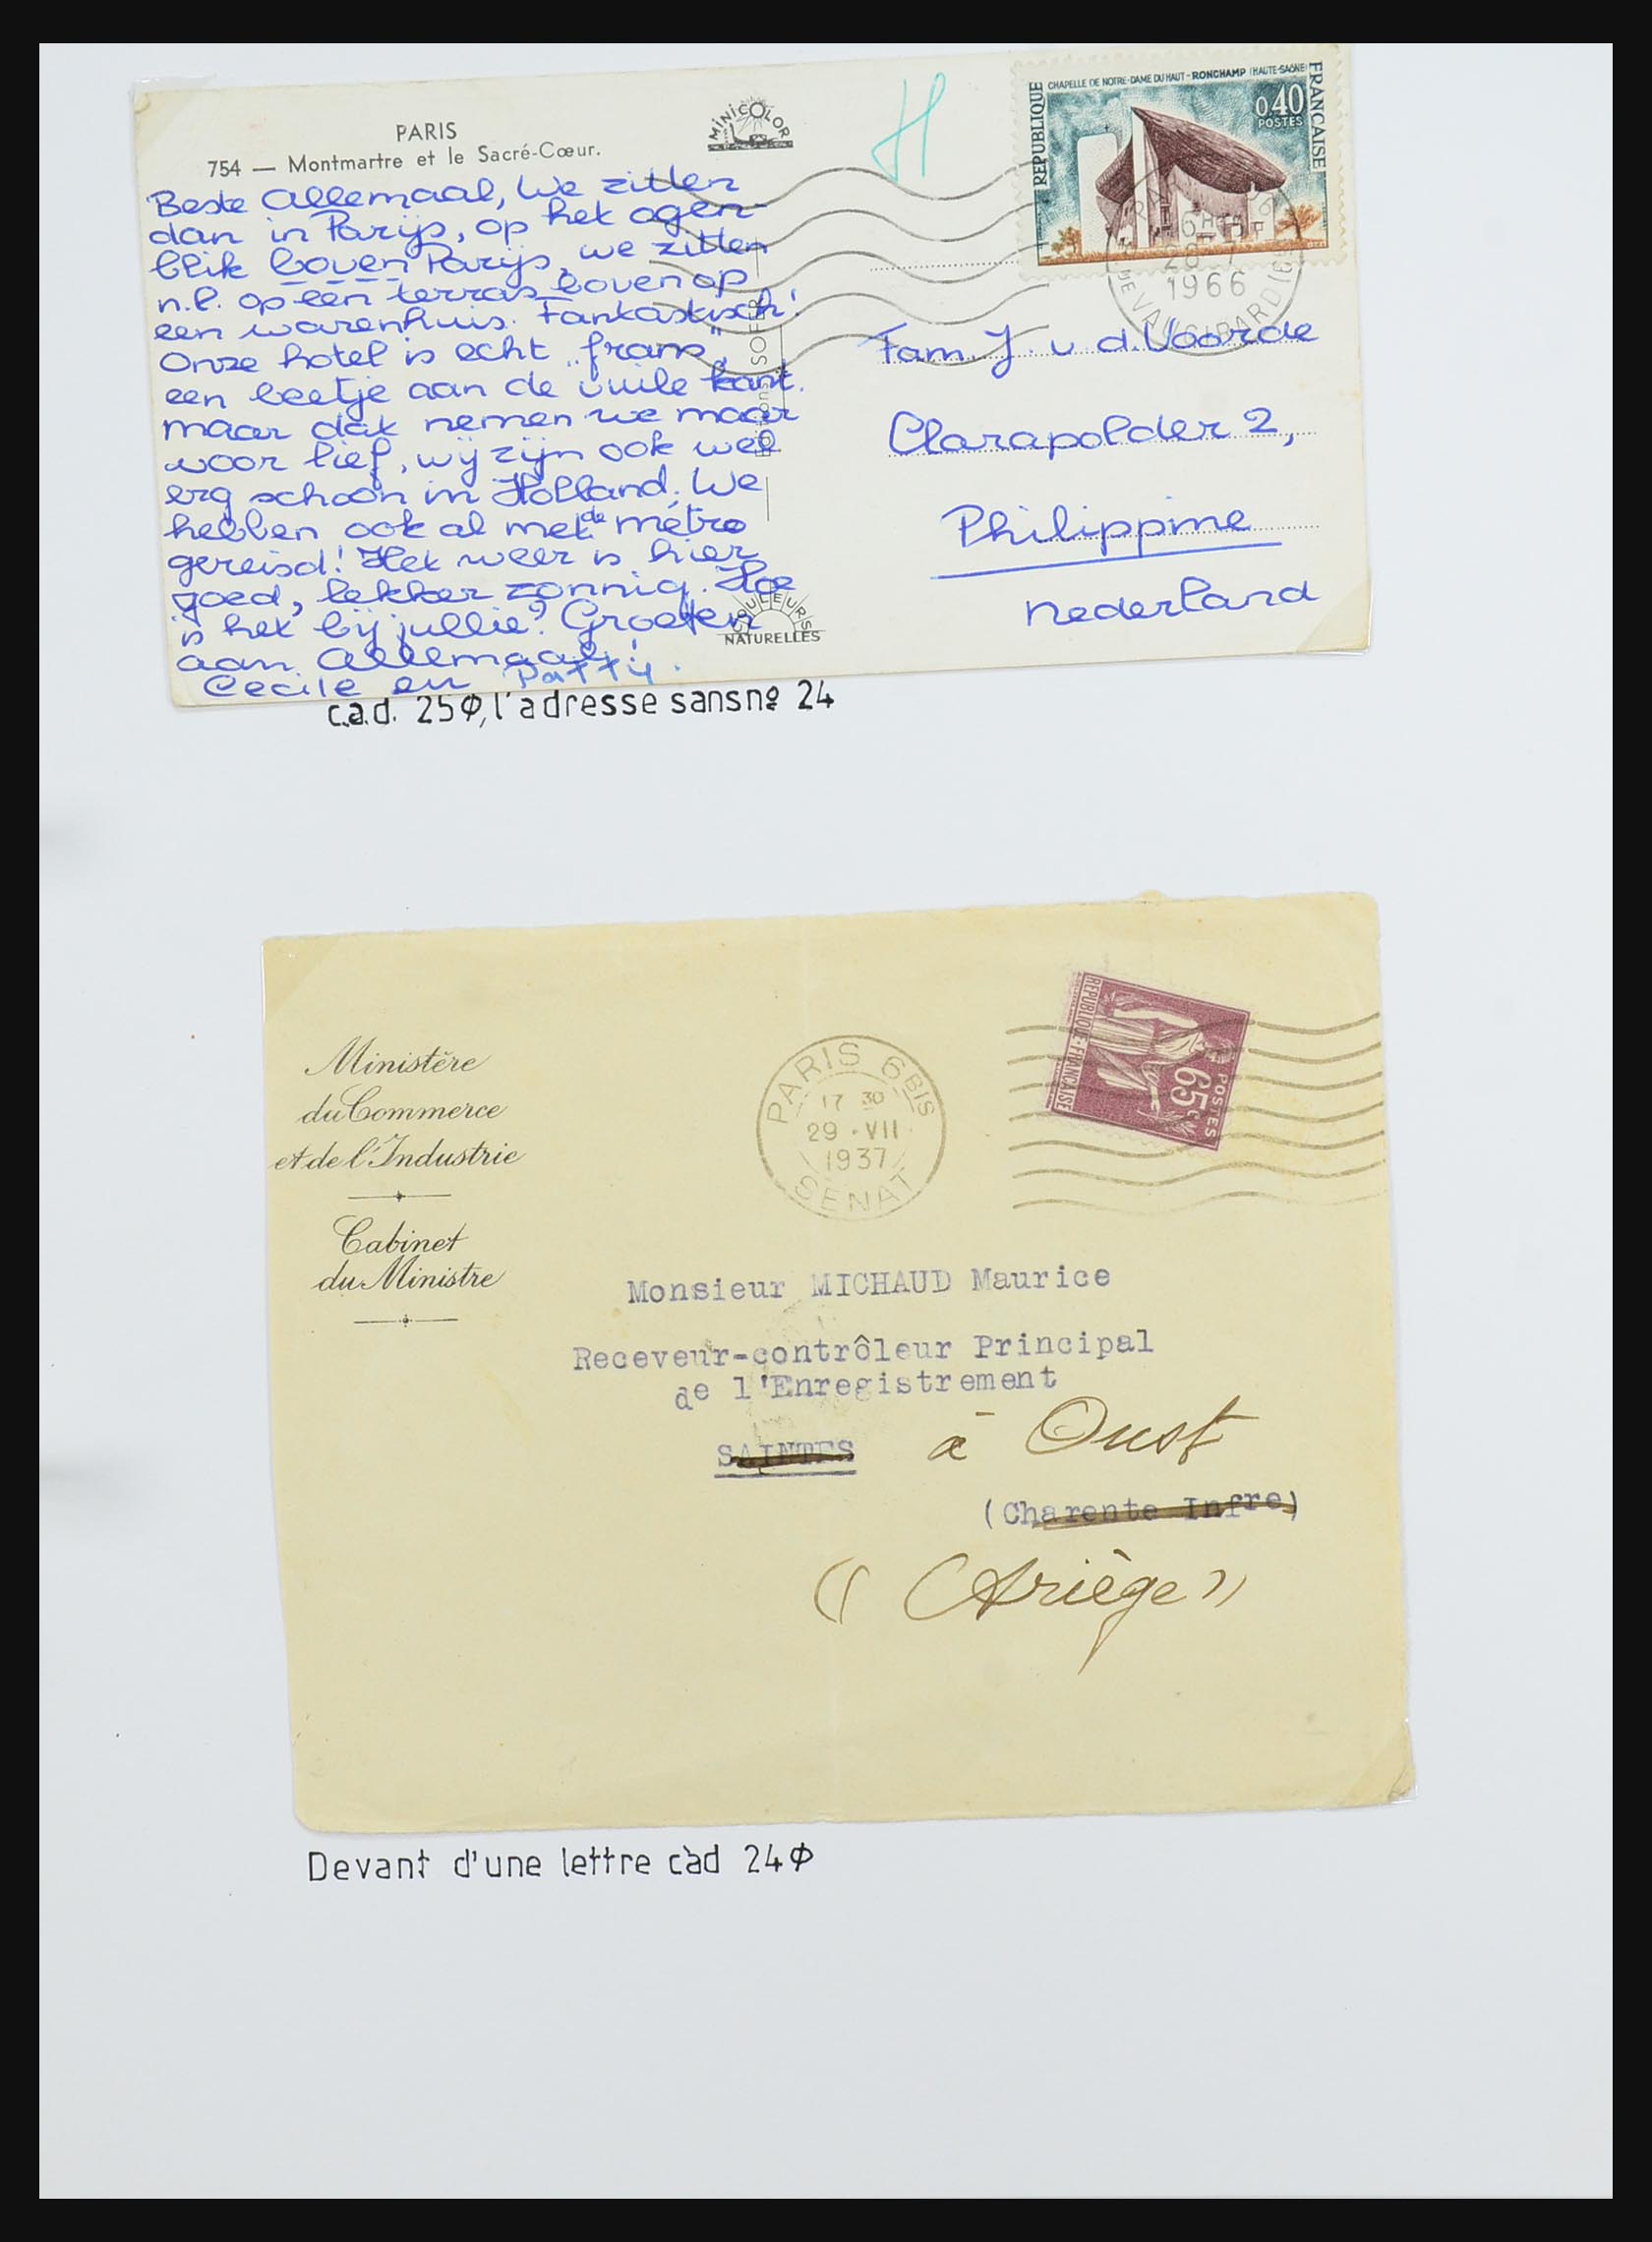 PARIS
754 — Montmartre et le Sacré-Cœur.
MINICOLOR
H
CHAPELLE DE NOTRE-DAME DU HAUT - RONCHAMP (HAUTE-SAÔNE)
REPUBLIQUE
FRANÇAISE
0,40
POSTES
1966
Beste Allemaal, We zitten
dan in Parijs, op het ogen-
blik boven Parijs, we zitten
n.l. op één terras bovenop
een warenhuis. Fantastisch!
Onze hotel is echt „frans",
een beetje aan de vuile kant.
maar dat nemen we maar
voor lief, wij zijn ook wel
erg schoon in Holland. We
hebben ook al met de métro
gereisd! Het weer is hier
goed, lekker zonnig. Hoe
is het bij jullie? Groeten
aan Allemaal!
Cecile en Patty.
Editions SOFER
COULEURS
NATURELLES
Fam. J. v. d. Voorde
Clarapolder 2,
Philippine
Nederland
c.a.d. 25Φ, l'adresse sans nº 24
Ministère
du Commerce
et de l'Industrie
Cabinet
du Ministre
PARIS 6 BIS
17 30
29 · VII
1937
SENAT
REPUBLIQUE FRANÇAISE
POSTES
65c
Monsieur MICHAUD Maurice
Receveur-contrôleur Principal
de l'Enregistrement
SAINTES à Oust
(Charente Infre)
(( Ariège ))
Devant d'une lettre càd 24Φ